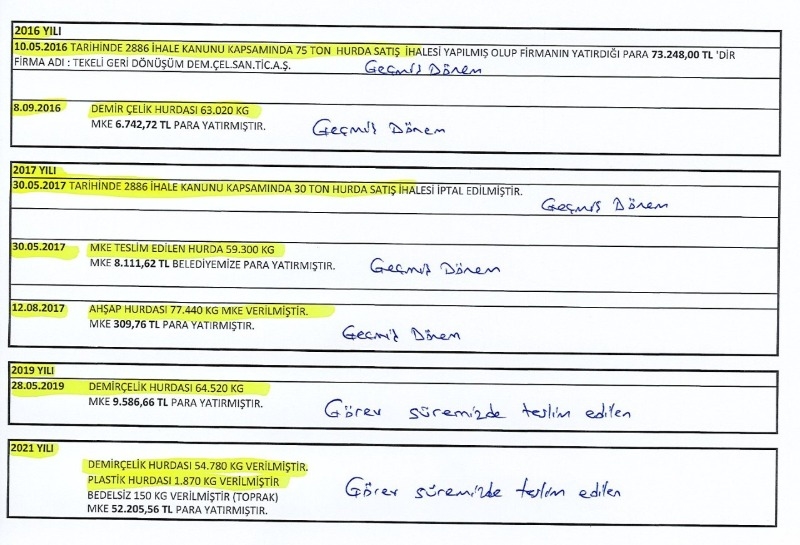 2016 YILI
10.05.2016 TARİHİNDE 2886 İHALE KANUNU KAPSAMINDA 75 TON HURDA SATIŞ İHALESİ YAPILMIŞ OLUP FİRMANIN YATIRDIĞI PARA 73.248,00 TL 'DİR
FİRMA ADI : TEKELİ GERİ DÖNÜŞÜM DEM.ÇEL.SAN.TİC.A.Ş. Geçmiş Dönem
8.09.2016 DEMİR ÇELİK HURDASI 63.020 KG
MKE 6.742,72 TL PARA YATIRMIŞTIR. Geçmiş Dönem
2017 YILI
30.05.2017 TARİHİNDE 2886 İHALE KANUNU KAPSAMINDA 30 TON HURDA SATIŞ İHALESİ İPTAL EDİLMİŞTİR.
Geçmiş Dönem
30.05.2017 MKE TESLİM EDİLEN HURDA 59.300 KG
MKE 8.111,62 TL BELEDİYEMİZE PARA YATIRMIŞTIR. Geçmiş Dönem
12.08.2017 AHŞAP HURDASI 77.440 KG MKE VERİLMİŞTİR.
MKE 309,76 TL PARA YATIRMIŞTIR. Geçmiş Dönem
2019 YILI
28.05.2019 DEMİRÇELİK HURDASI 64.520 KG
MKE 9.586,66 TL PARA YATIRMIŞTIR. Görev süremizde teslim edilen
2021 YILI
DEMİRÇELİK HURDASI 54.780 KG VERİLMİŞTİR.
PLASTİK HURDASI 1.870 KG VERİLMİŞTİR
BEDELSİZ 150 KG VERİLMİŞTİR (TOPRAK) Görev süremizde teslim edilen
MKE 52.205,56 TL PARA YATIRMIŞTIR.